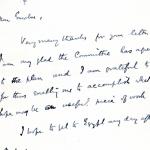 Very many thanks for your letter
I am very glad the Committee has
to the plan, and I am grateful to
for thus enabling me to accomplish what
hope may be a useful piece of work
I hope to get to Egypt any day